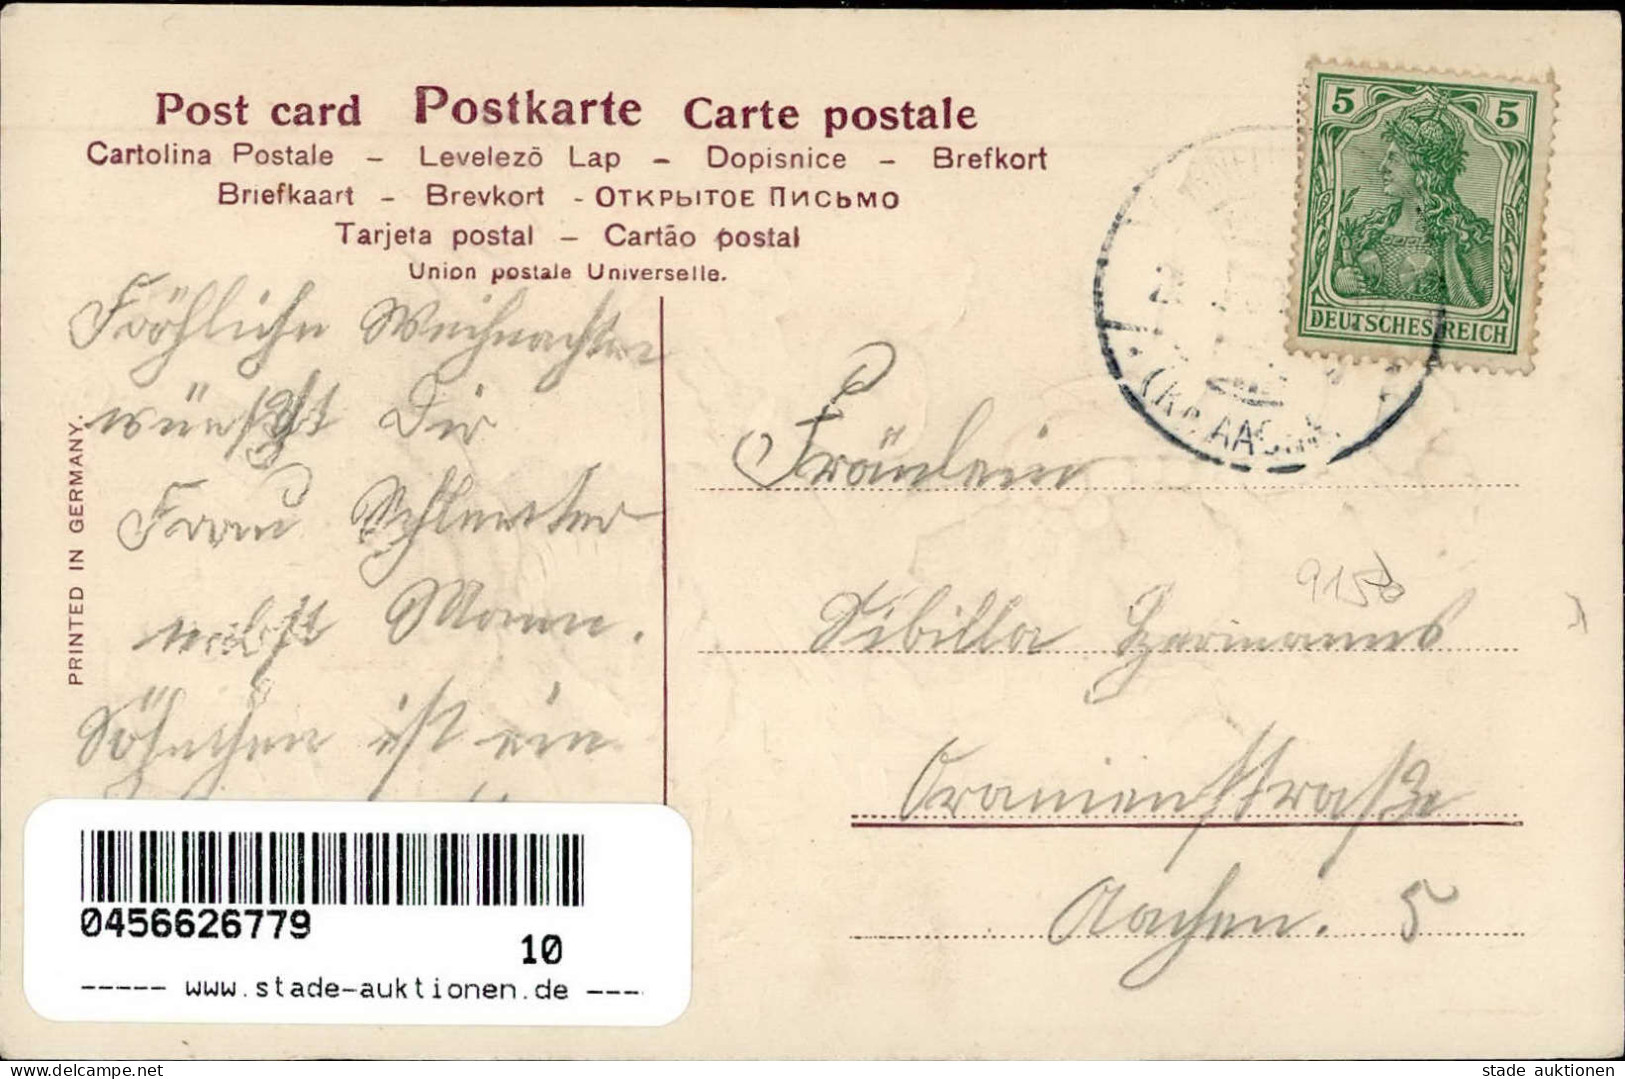 Post card Postkarte Carte postale
Cartolina Postale – Levelezö Lap – Dopisnice – Brefkort
Briefkaart – Brevkort - ОТКРЫТОЕ ПИСЬМО
Tarjeta postal – Cartão postal
Union postale Universelle.
PRINTED IN GERMANY.
5 5
DEUTSCHES REICH
Fröhliche Weihnachten
wünscht Dir
Frau
nebst Mann.
Söhnchen ist ein
Fräulein
Sibilla Hermanns
Oranienstraße
Aachen. 5
0456626779
10
----- www.stade-auktionen.de ---
stade auktionen